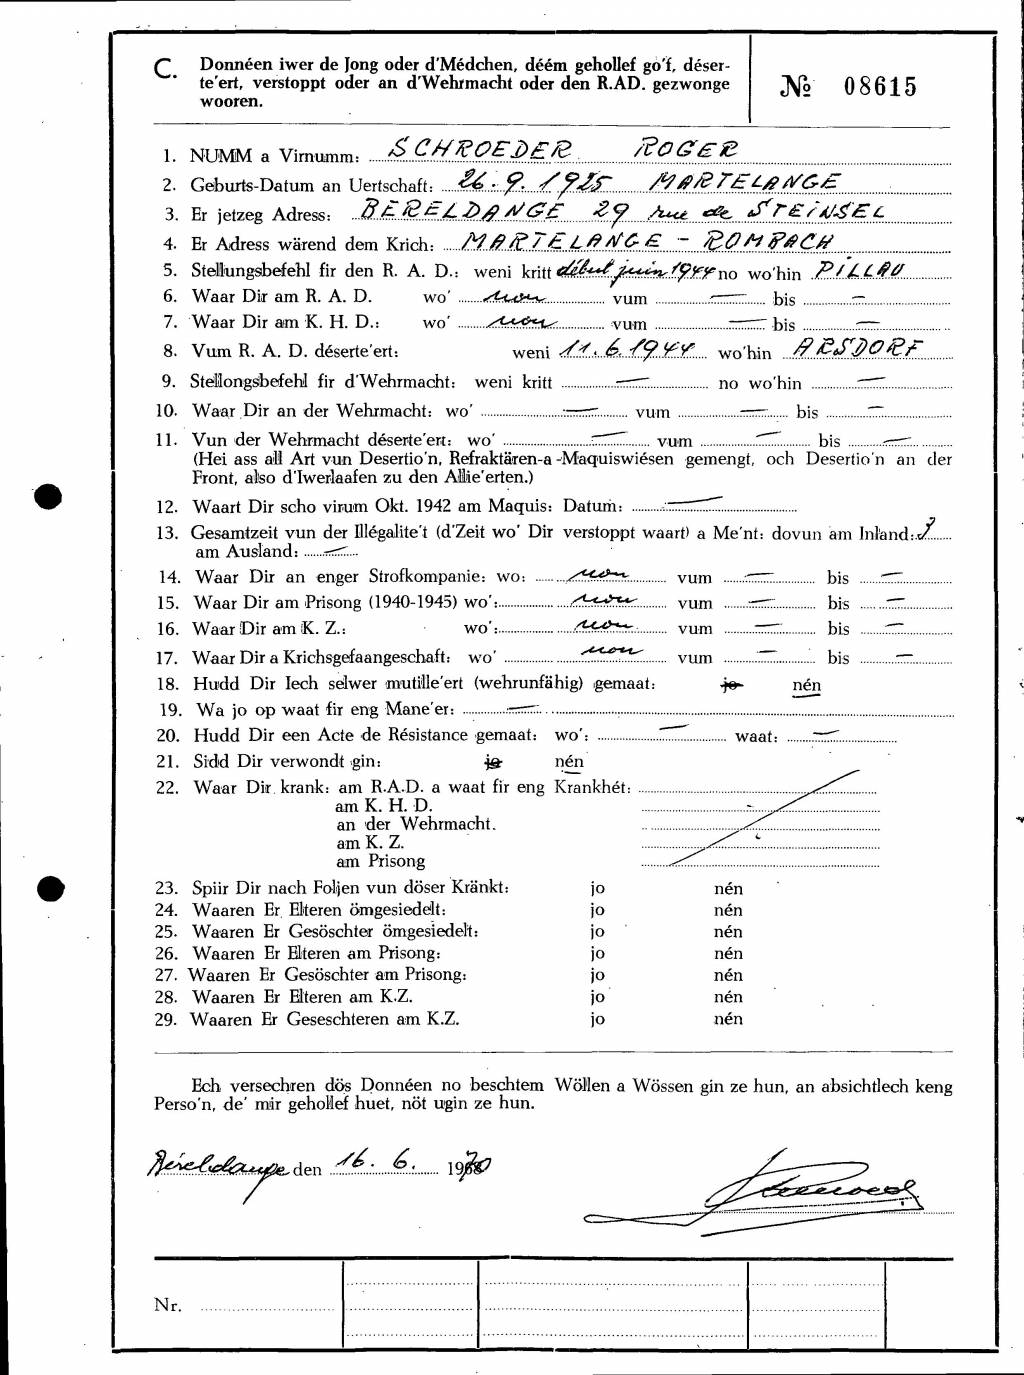 C. Donnéen iwer de Jong oder d'Médchen, déém gehollef go'f, déser-
te'ert, verstoppt oder an d'Wehrmacht oder den R.AD. gezwonge
wooren.
№ 08615
1. NUMM a Virnumm: SCHROEDER ROGER
2. Geburts-Datum an Uertschaft: 26.9.1925 MARTELANGE
3. Er jetzeg Adress: BERELDANGE 29 rue de STEINSEL
4. Er Adress wärend dem Krich: MARTELANGE - ROMBACH
5. Stellungsbefehl fir den R. A. D.: weni kritt début juin 1944 no wo'hin PILLAU
6. Waar Dir am R. A. D. wo' non vum — bis —
7. Waar Dir am K. H. D.: wo' non vum — bis —
8. Vum R. A. D. déserte'ert: weni 11.6.1944 wo'hin ARSDORF
9. Stellongsbefehl fir d'Wehrmacht: weni kritt — no wo'hin —
10. Waar Dir an der Wehrmacht: wo' — vum — bis —
11. Vun der Wehrmacht déserte'ert: wo' — vum — bis —
(Hei ass all Art vun Desertio'n, Refraktären-a-Maquiswiésen gemengt, och Desertio'n an der
Front, also d'Iwerlaafen zu den Allie'erten.)
12. Waart Dir scho virum Okt. 1942 am Maquis: Datum: —
13. Gesamtzeit vun der Illégalite't (d'Zeit wo' Dir verstoppt waart) a Me'nt: dovun am Inland:
am Ausland: —
14. Waar Dir an enger Strofkompanie: wo: non vum — bis —
15. Waar Dir am Prisong (1940-1945) wo': non vum — bis —
16. Waar Dir am K. Z.: wo': non vum — bis —
17. Waar Dir a Krichsgefaangeschaft: wo' non vum — bis —
18. Hudd Dir Iech selwer mutille'ert (wehrunfähig) gemaat: jo nén
19. Wa jo op waat fir eng Mane'er: —
20. Hudd Dir een Acte de Résistance gemaat: wo': — waat: —
21. Sidd Dir verwondt gin: jo nén
22. Waar Dir krank: am R.A.D. a waat fir eng Krankhét:
am K. H. D.
an der Wehrmacht.
am K. Z.
am Prisong
23. Spiir Dir nach Foljen vun döser Kränkt: jo nén
24. Waaren Er Elteren ömgesiedelt: jo nén
25. Waaren Er Gesöschter ömgesiedelt: jo nén
26. Waaren Er Elteren am Prisong: jo nén
27. Waaren Er Gesöschter am Prisong: jo nén
28. Waaren Er Elteren am K.Z. jo nén
29. Waaren Er Geseschteren am K.Z. jo nén
Ech versechren dös Donnéen no beschtem Wöllen a Wössen gin ze hun, an absichtlech keng
Perso'n, de' mir gehollef huet, nöt ugin ze hun.
Béreldange den 16. 6. 1970
Nr.